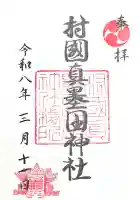 奉拝
村國真墨田神社
令和八年三月十一日